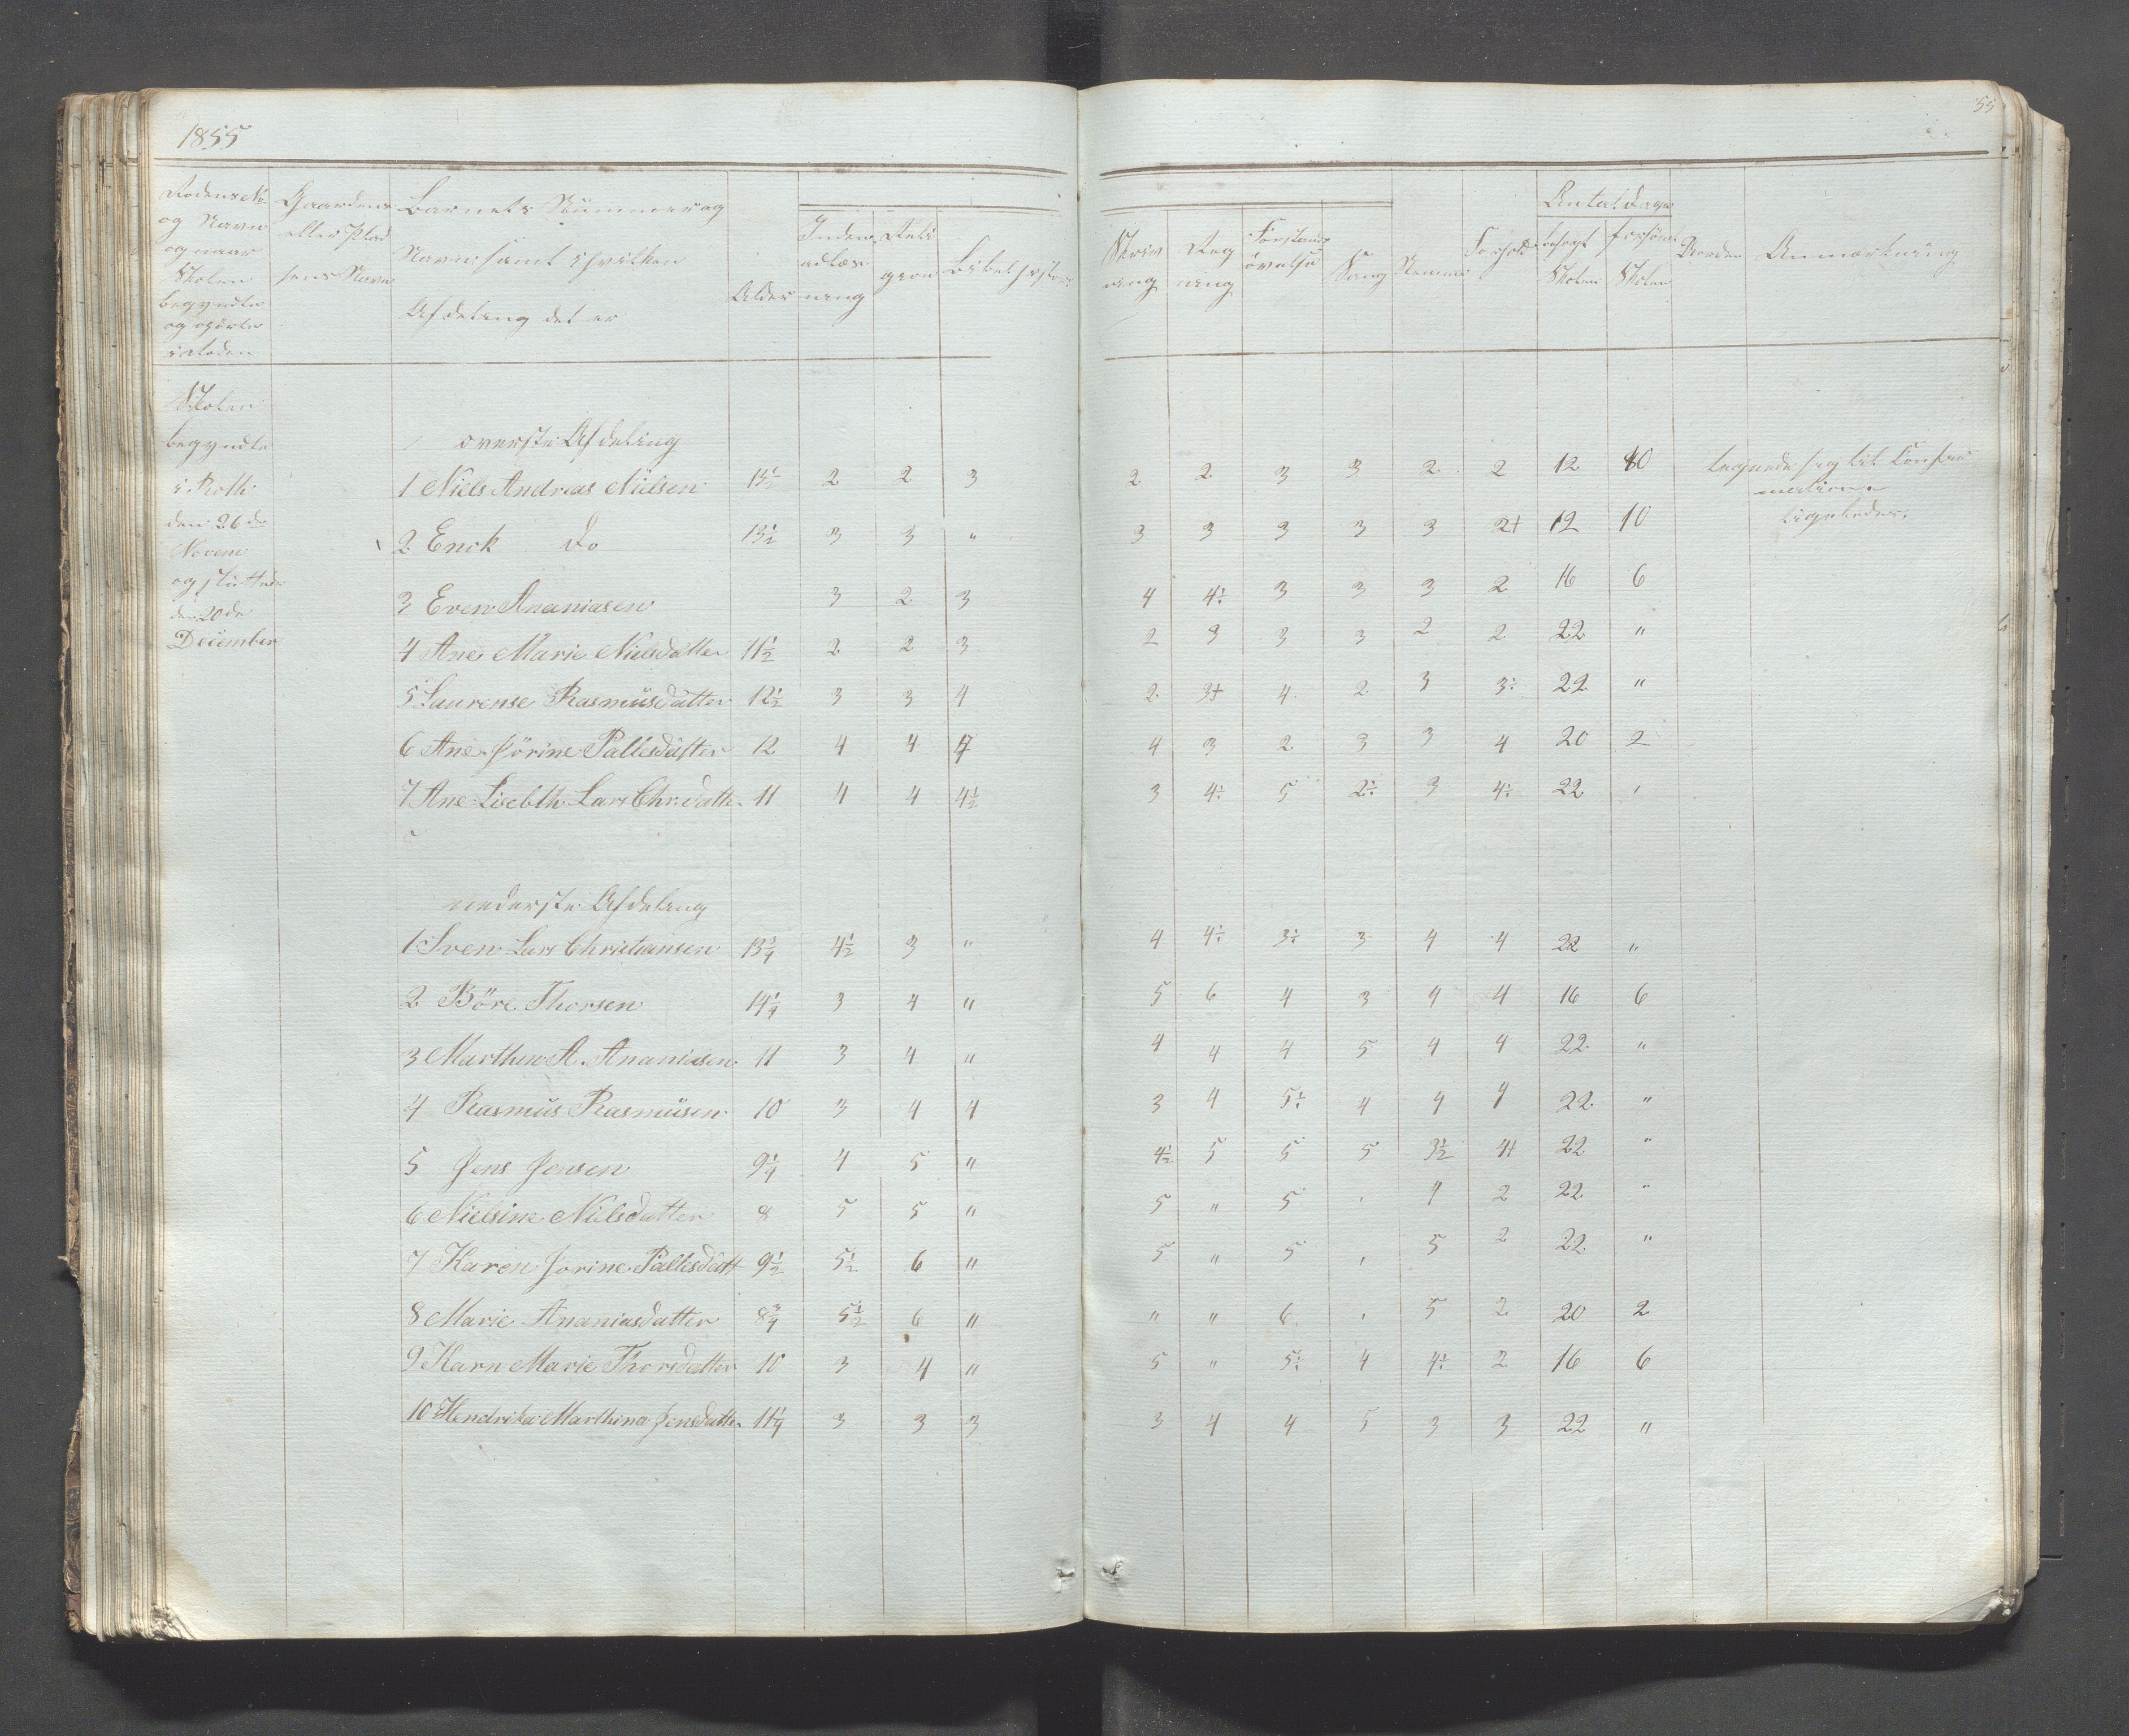 1855
55
Rodens No
og Navn
og naar
Skolen
begyndte
og ophørte
i Roden
Gaardens
eller Plad
sens Navn
Barnets Nummer og
Navn samt i hvilken
Afdeling det er
Alder
Inden
adlæs
ning
Reli
gion
Bibelhistorie
Skriv
ning
Reg
ning
Forstands
øvelse
Sang
Nemme
Forhold
Antal Dage
besøgt
Skolen
forsømt
Skolen
Anmærkning
Skolen
begyndte
i Roth
den 26de
Novem
og sluttede
den 20de
December
øverste Afdeling
1 Niels Andreas Nielsen 2 2 3 2 2 3 3 2 2 12 10 tegnede sig til Confir
mation
2 Enok do 13½ 3 3 " 3 3 3 3 3 2+ 12 10 ligeledes
3 Even Ananiasen 3 2 3 4 4÷ 3 3 3 2 16 6
4 Ane Marie Nielsdatter 11½ 2 2 3 2 3 3 3 2 2 22 "
5 Laurense Rasmusdatter 12½ 3 3 4 2 3+ 4 2 3 3÷ 22 "
6 Ane Jörine Pallesdatter 12 4 4 4 3 2 3 3 4 20 2
7 Ane Lisebth Lars Chr.datter 11 4 4 4½ 3 4÷ 5 2÷ 3 4÷ 22 "
nederste Afdeling
1 Sven Lars Christiansen 13¾ 4½ 3 " 4 4÷ 3÷ 3 4 4 22 "
2 Böre Thorsen 14¼ 3 4 " 5 6 4 3 4 4 16 6
3 Marthin A. Ananiasen 11 3 4 " 4 4 4 5 4 4 22 "
4 Rasmus Rasmusen 10 3 4 4 3 4 5÷ 4 4 4 22 "
5 Jens Jensen 9¼ 4 5 " 4½ 5 5 5 3½ 4+ 22 "
6 Nielsine Nielsdatter 8 5 5 " 5 " 5 " 4 2 22 "
7 Karen Jorine Pallesdatt 9½ 5½ 6 " 5 " 5 " 5 2 22 "
8 Marie Ananiasdatter 8¾ 5½ 6 " " " 6 " 5 2 20 2
9 Karn Marie Thorsdatter 10 3 4 " 5 " 5÷ 4 4÷ 2 16 6
10 Hendrika Marthina Jensdatter 11¼ 3 3 3 3 4 4 5 3 3 22 "